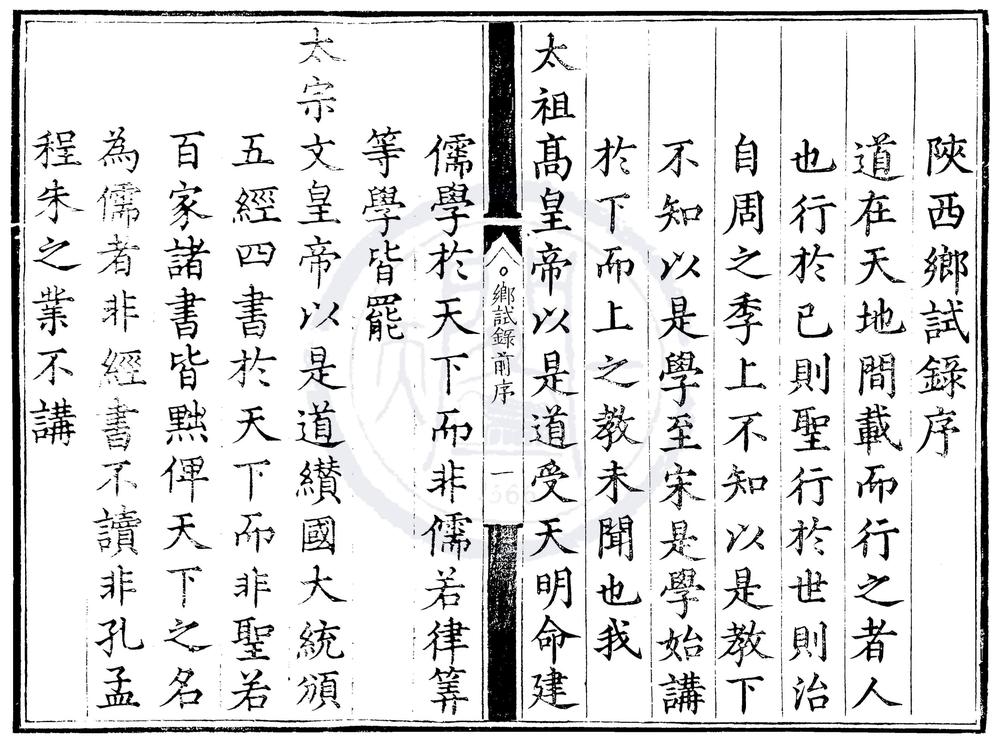 陜西鄉試錄序
道在天地間載而行之者人
也行於已則聖行於世則治
自周之季上不知以是教下
不知以是學至宋是學始講
於下而上之教未聞也我
太祖高皇帝以是道受天明命建
鄉試錄前序
一
儒學於天下而非儒若律筭
等學皆罷
太宗文皇帝以是道纉國大統頒
五經四書於天下而非聖若
百家諸書皆黜俾天下之名
為儒者非經書不讀非孔孟
程朱之業不講